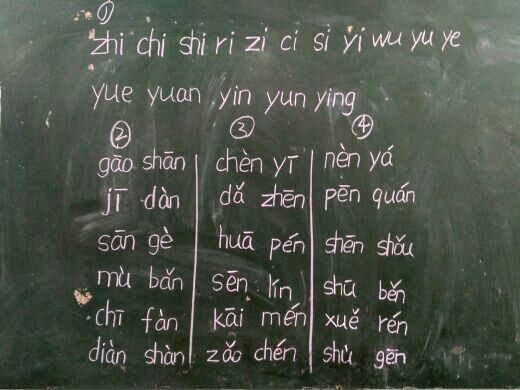 ①
zhi chi shi ri zi ci si yi wu yu ye
yue yuan yin yun ying
② ③ ④
gāo shān chèn yī nèn yá
jī dàn dǎ zhēn pēn quán
sān gè huā pén shēn shǒu
mù bǎn sēn lín shū běn
chī fàn kāi mén xuě rén
diàn shàn zǎo chén shù gēn